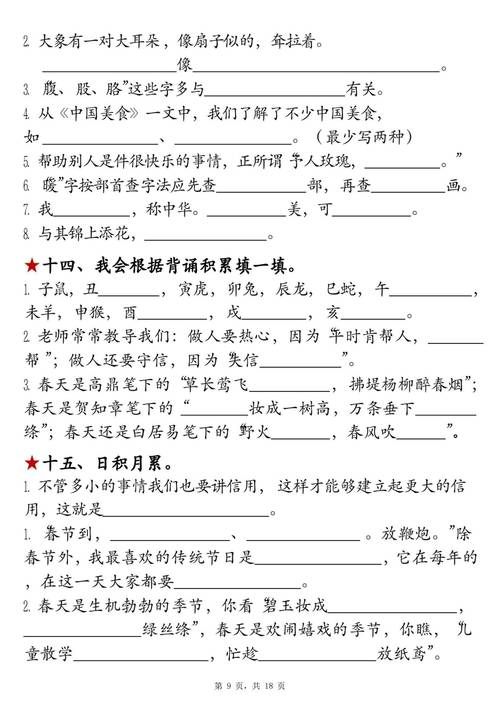 2. 大象有一对大耳朵，像扇子似的，耷拉着。
____________________像____________________。
3. “腹、股、胳”这些字多与____________________有关。
4. 从《中国美食》一文中，我们了解了不少中国美食，
如________________、________________。（最少写两种）
5. 帮助别人是件很快乐的事情，正所谓“予人玫瑰，____________。”
6. “暖”字按部首查字法应先查____________部，再查____________画。
7. 我____________，称中华。____________美，可____________。
8. 与其锦上添花，________________。
★十四、我会根据背诵积累填一填。
1. 子鼠，丑____________，寅虎，卯兔，辰龙，巳蛇，午____________，
未羊，申猴，酉__________，戌__________，亥__________。
2. 老师常常教导我们：做人要热心，因为“平时肯帮人，________
帮”；做人还要守信，因为“失信____________”。
3. 春天是高鼎笔下的“草长莺飞____________，拂堤杨柳醉春烟”；
春天是贺知章笔下的“________妆成一树高，万条垂下________
绦”；春天还是白居易笔下的“野火________，春风吹________”。
★十五、日积月累。
1. 不管多小的事情我们也要讲信用，这样才能够建立起更大的信
用，这就是____________________。
1. “春节到，________________、________________。放鞭炮。”除
春节外，我最喜欢的传统节日是________________，它在每年的
，在这一天大家都要________________。
2. 春天是生机勃勃的季节，你看“碧玉妆成________________，
________________绿丝绦”，春天是欢闹嬉戏的季节，你瞧，“儿
童散学________________，忙趁____________放纸鸢”。
第 9 页，共 18 页